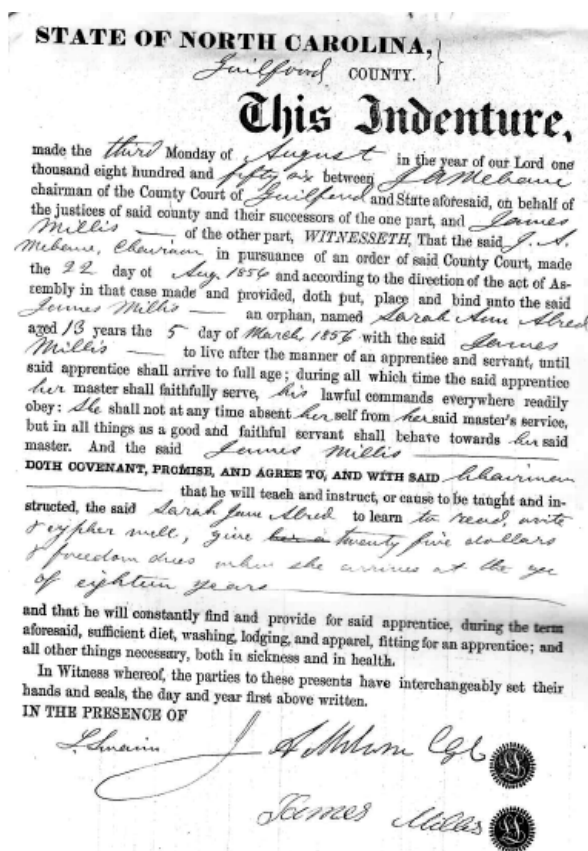 STATE OF NORTH CAROLINA,
Guilford COUNTY.
This Indenture,
made the third Monday of August in the year of our Lord one
thousand eight hundred and fifty six between J A Mebane
chairman of the County Court of Guilford and State aforesaid, on behalf of
the justices of said county and their successors of the one part, and James
Millis of the other part, WITNESSETH, That the said J. A.
Mebane, Chairman in pursuance of an order of said County Court, made
the 22 day of Aug. 1856 and according to the direction of the act of As-
sembly in that case made and provided, doth put, place and bind unto the said
James Millis an orphan, named Sarah Ann Alred
aged 13 years the 5 day of March, 1856 with the said James
Millis to live after the manner of an apprentice and servant, until
said apprentice shall arrive to full age; during all which time the said apprentice
her master shall faithfully serve, his lawful commands everywhere readily
obey: She shall not at any time absent her self from her said master's service,
but in all things as a good and faithful servant shall behave towards her said
master. And the said James Millis
DOTH COVENANT, PROMISE, AND AGREE TO, AND WITH SAID Chairman
that he will teach and instruct, or cause to be taught and in-
structed, the said Sarah Jane Alred to learn to read, write
& cypher well, give her a twenty five dollars
& freedom dues when she arrives at the age
of eighteen years
and that he will constantly find and provide for said apprentice, during the term
aforesaid, sufficient diet, washing, lodging, and apparel, fitting for an apprentice; and
all other things necessary, both in sickness and in health.
In Witness whereof, the parties to these presents have interchangeably set their
hands and seals, the day and year first above written.
IN THE PRESENCE OF
J A Mebane
James Millis